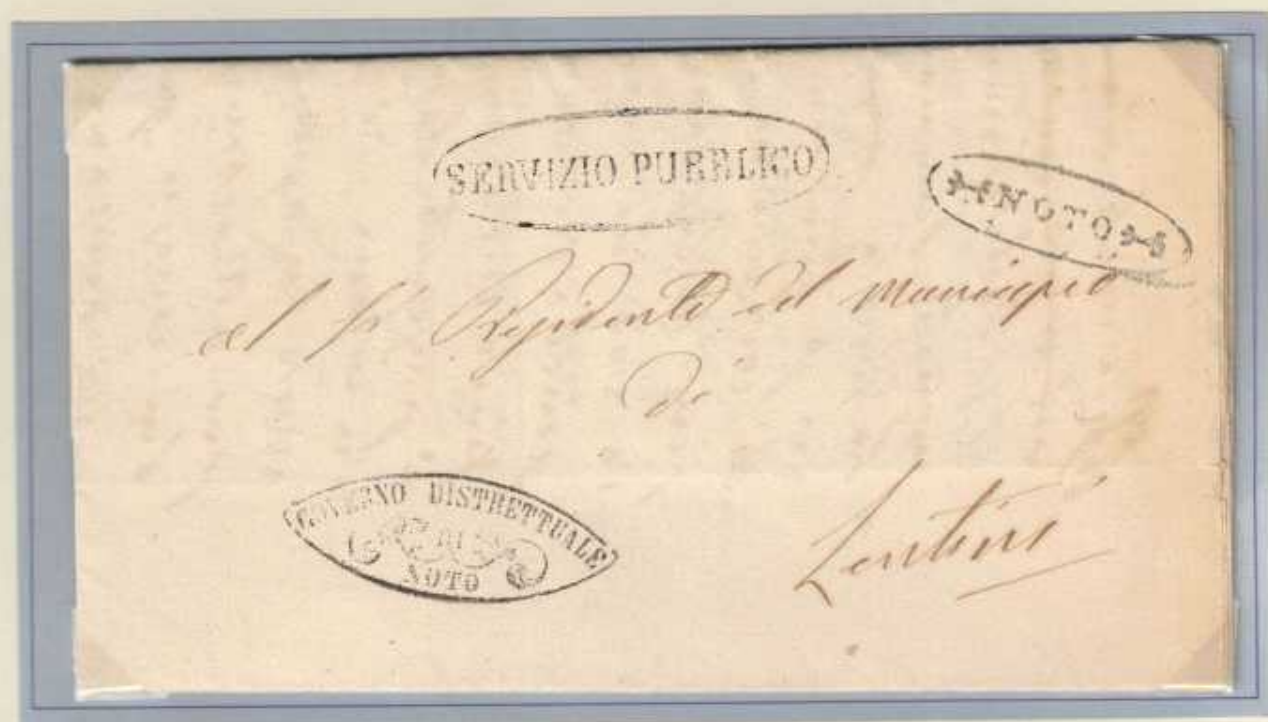 SERVIZIO PUBBLICO
NOTO
Al Sr Presidente del Municipio
di
Lentini
GOVERNO DISTRETTUALE
DI
NOTO